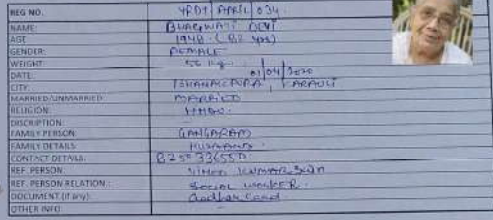 REG NO. YRDT APRIL 034
NAME: BHAGWATI DEVI
AGE 1948 - (82 yrs)
GENDER: FEMALE
WEIGHT 56 kg
DATE: 01/04/2020
CITY:
MARRIED/UNMARRIED MARRIED
RELIGION: HINDU
DISCRIPTION:
FAMILY PERSON: GANGARAM
FAMILY DETAILS HUSBAND
CONTACT DETAILS:
REF. PERSON KUMAR
REF. PERSON RELATION: SOCIAL WORKER.
DOCUMENT (if any): Aadhar Card
OTHER INFO